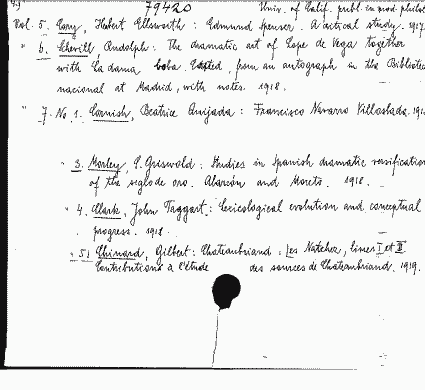 79420 Univ. of Calif. publ. in mod. philol
Vol. 5. Cory, Herbert Ellsworth: Edmund Spenser. A critical study. 1917
" 6. Schevill, Rudolph: The dramatic art of Lope de Vega together
with La dama boba. Edited, from an autograph in the Bibliotec
nacional at Madrid, with notes. 1918.
" 7. No 1. Cornish, Beatrice Quijada: Francisco Navarro Villoslada. 191
" 3. Morley, S. Griswold: Studies in Spanish dramatic versification
of the siglo de oro. Alarcón and Moreto. 1918.
" 4. Clark, John Taggart: Lexicological evolution and conceptual
progress. 1918.
" 5. Chinard, Gilbert: Chateaubriand: Les Natchez, livres I et II
Contributions à l'étude des sources de Chateaubriand. 1919.